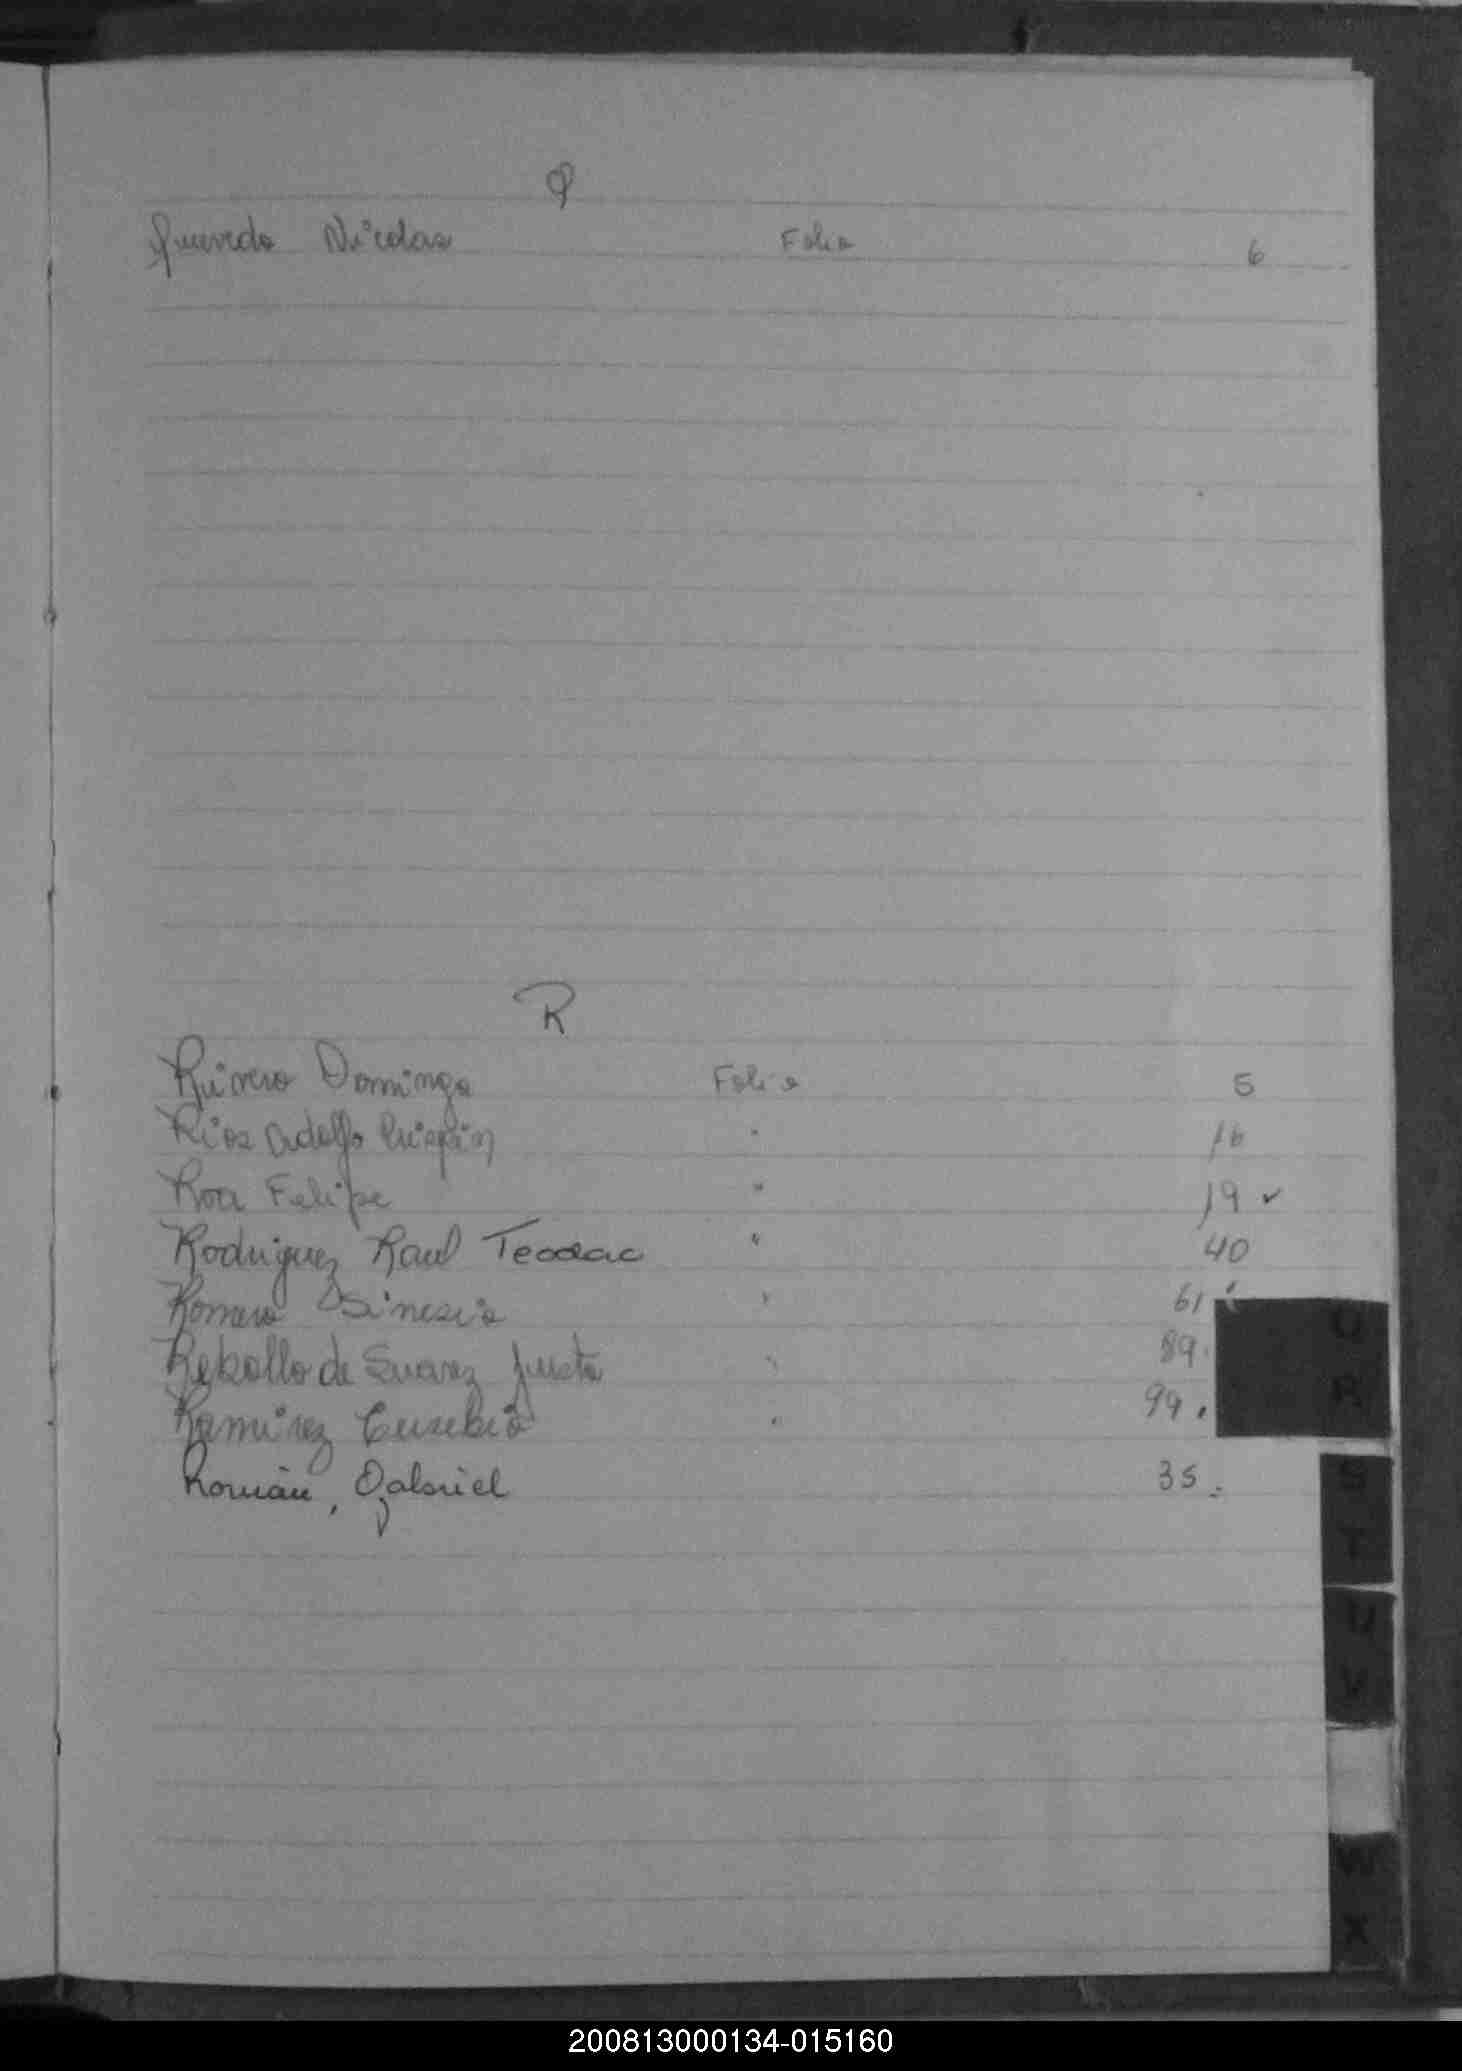 Q
Quevedo Nicolas Folio 6
R
Rivero Domingo Folio 5
Rios Adolfo Crispin " 16
Roa Felipe " 19 ✓
Rodriguez Raul " 40
Romero Sinesio " 61
Rebollo de Suarez Justa " 89.
Ramirez Eusebio " 99.
Román, Gabriel 35.
Q
R
S
T
U
V
W
X
200813000134-015160